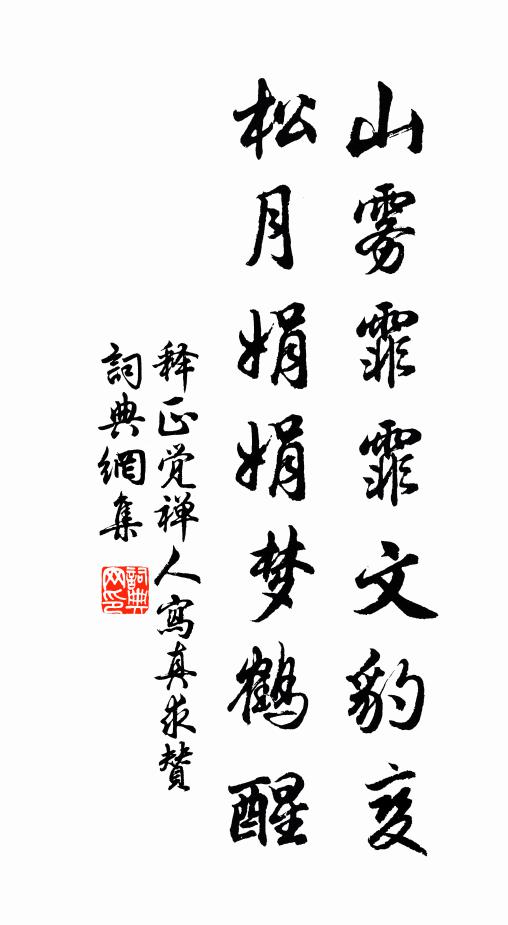 山雾霏霏文豹变
松月娟娟梦鹤醒
释正觉禅人寫真求贊
詞典網集
詞典
网印